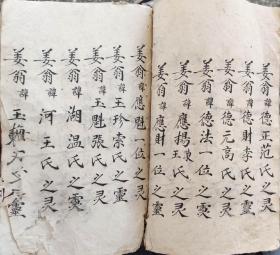 姜翁諱德正范氏之灵
姜翁諱德財李氏之灵
姜翁諱德元高氏之灵
姜翁諱德法一位之灵
姜翁諱應揚王氏之灵
姜翁諱應財一位之靈
姜翁諱應魁一位之灵
姜翁諱玉魁張氏之灵
姜翁諱玉珍索氏之靈
姜翁諱湖温氏之灵
姜翁諱河王氏之灵
姜翁諱玉之靈